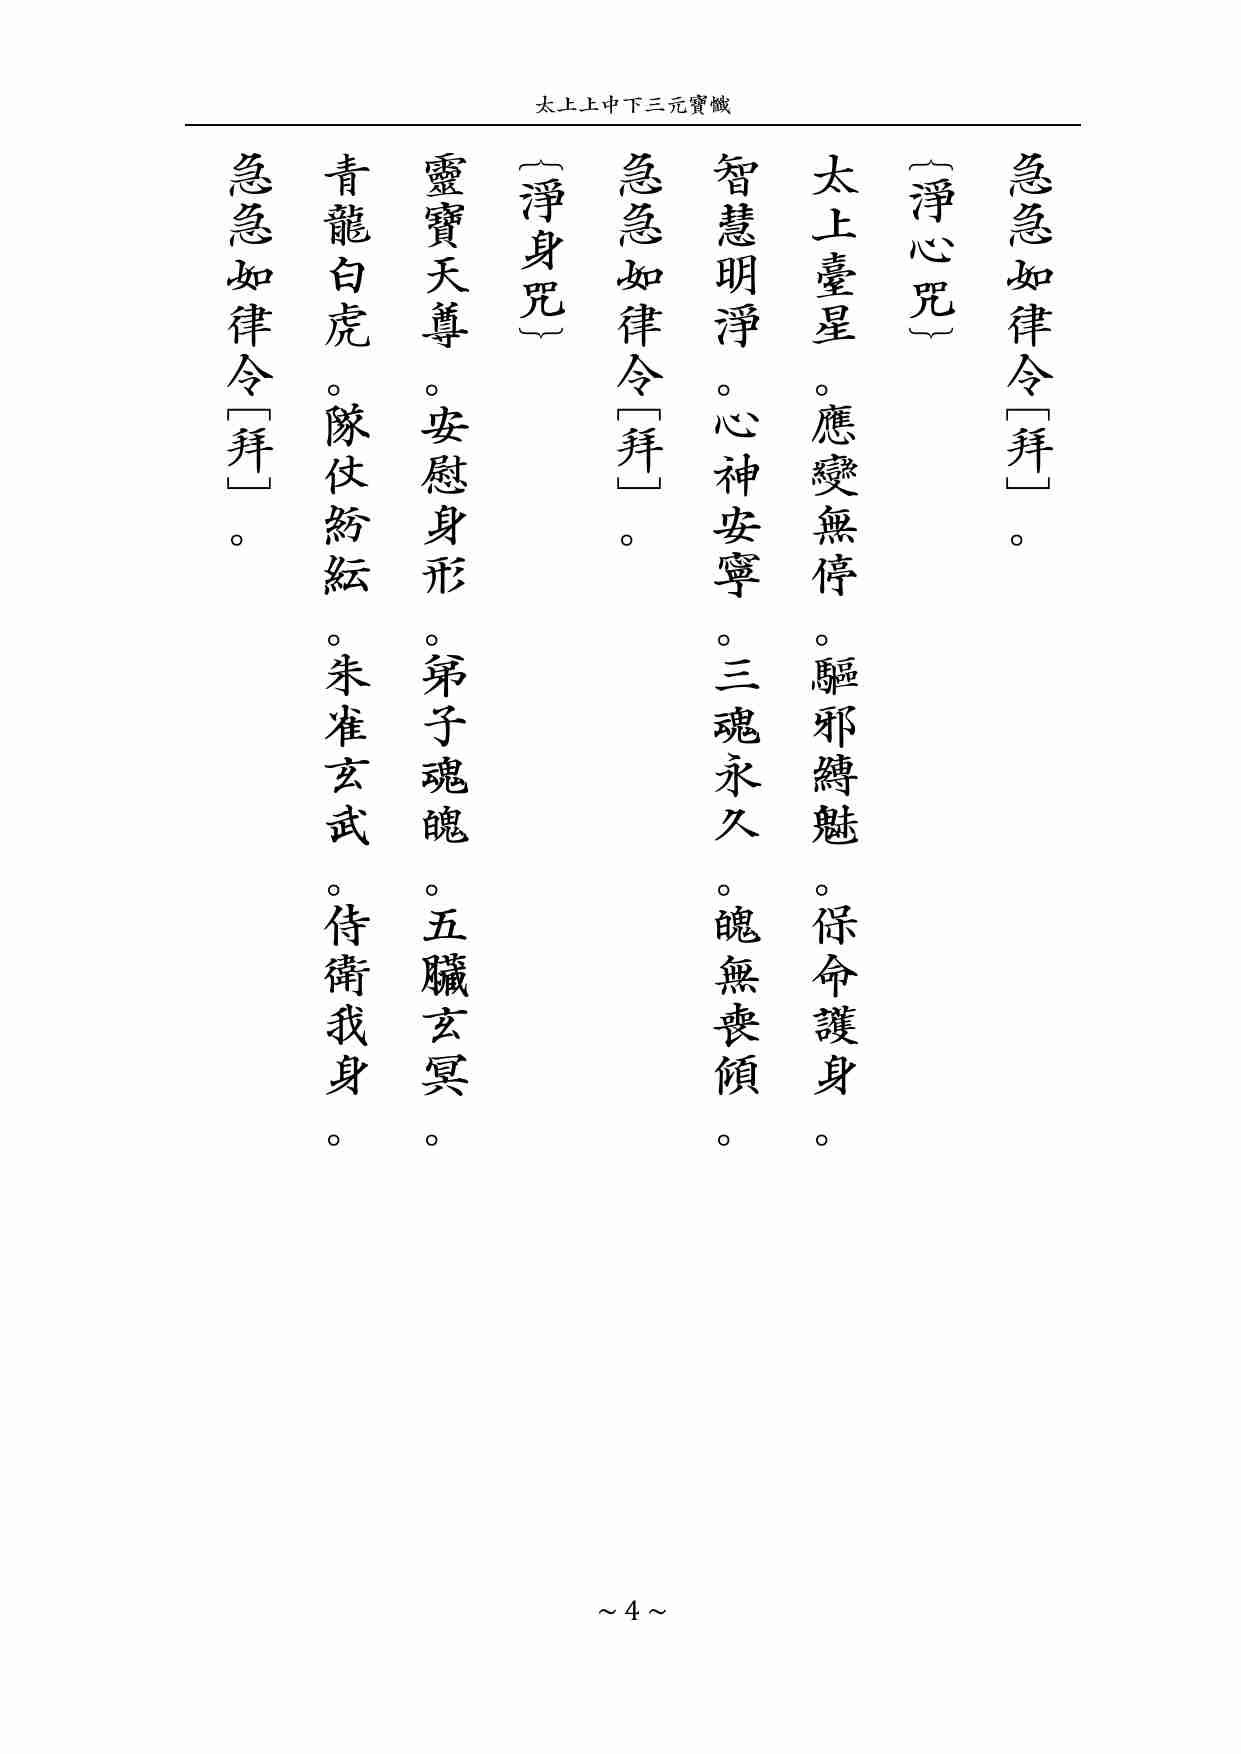 太上上中下三元寶懺
急急如律令［拜］。
｛淨心咒｝
太上臺星。應變無停。驅邪縛魅。保命護身。
智慧明淨。心神安寧。三魂永久。魄無喪傾。
急急如律令［拜］。
｛淨身咒｝
靈寶天尊。安慰身形。弟子魂魄。五臟玄冥。
青龍白虎。隊仗紛紜。朱雀玄武。侍衛我身。
急急如律令［拜］。
~ 4 ~